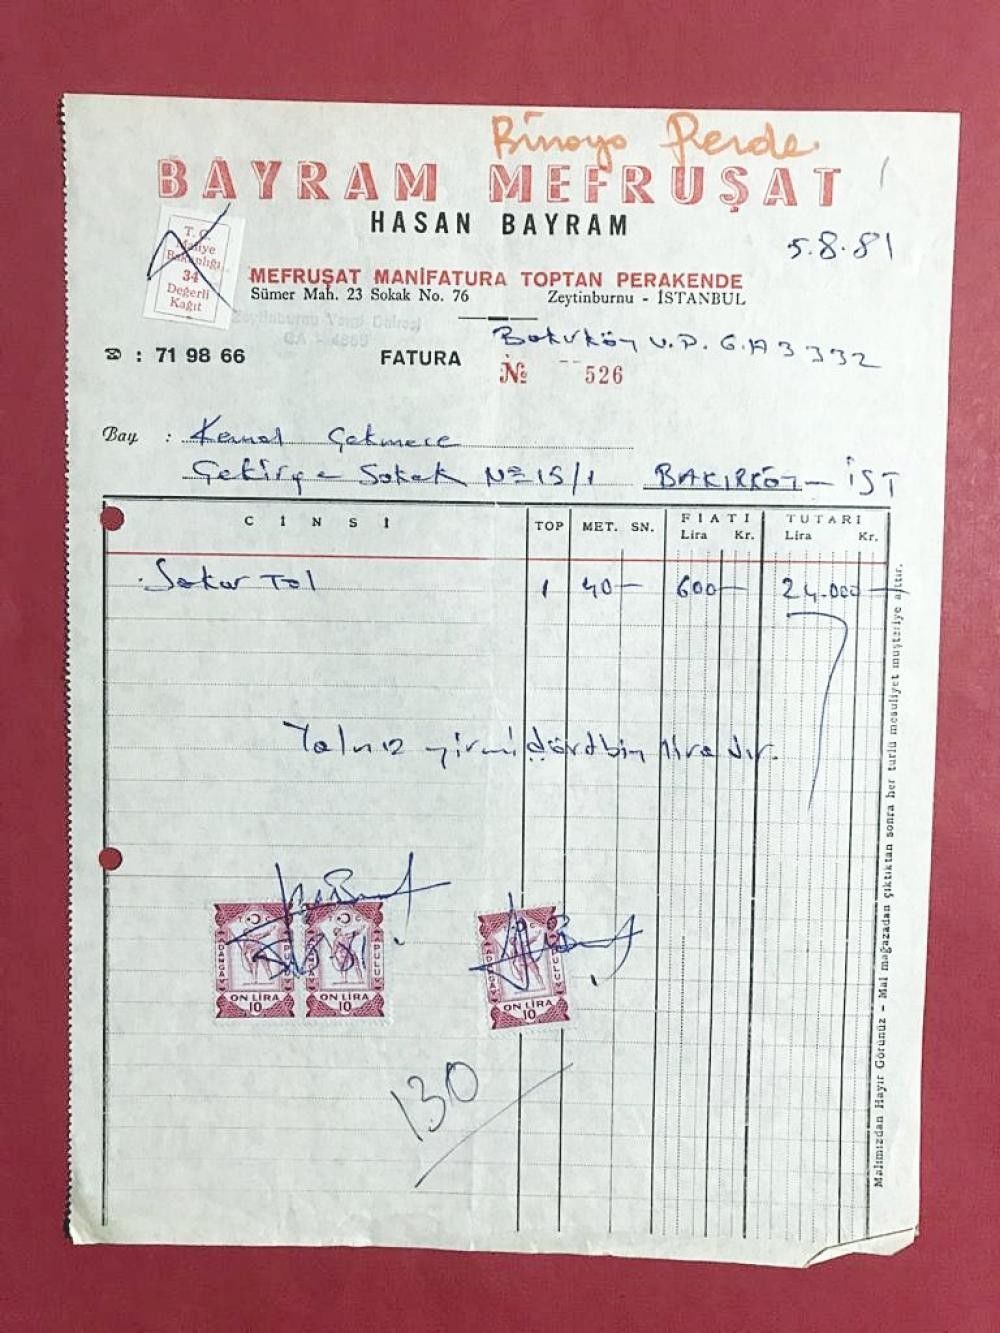 Binaya Perde
BAYRAM MEFRUŞAT
HASAN BAYRAM
5.8.81
T. C.
Maliye
Bakanlığı
34
Değerli
Kağıt
MEFRUŞAT MANİFATURA TOPTAN PERAKENDE
Sümer Mah. 23 Sokak No. 76 Zeytinburnu - İSTANBUL
Zeytinburnu Vergi Dairesi
☎ : 71 98 66 FATURA
Bakırköy V.D.
№ 526
Bay : Kemal Çekmece
Çekirge Sokak № 15/1 BAKIRKÖY - İST
CİNSİ TOP MET. SN. FIATI Lira Kr. TUTARI Lira Kr.
1 40- 600- 24.000-
Yalnız yirmidörtbin liradır.
T C
DAMGA PULU
ON LİRA
10
T C
DAMGA PULU
ON LİRA
10
DAMGA PULU
ON LİRA
10
130
Malımızdan Hayır Görünüz - Mal mağazadan çıktıktan sonra her türlü mesuliyet müşteriye aittir.